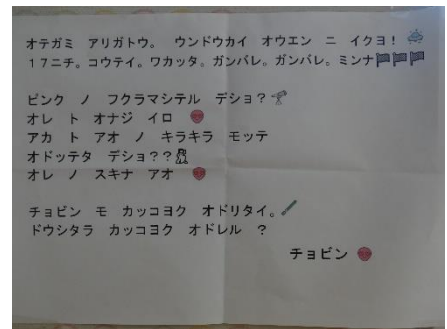 オテガミ アリガトウ。 ウンドウカイ オウエン ニ イクヨ！
１７ニチ。コウテイ。ワカッタ。ガンバレ。ガンバレ。ミンナ
ピンク ノ フクラマシテル デショ？
オレ ト オナジ イロ
アカ ト アオ ノ キラキラ モッテ
オドッテタ デショ？？
オレ ノ スキナ アオ
チョビン モ カッコヨク オドリタイ。
ドウシタラ カッコヨク オドレル ？
チョビン